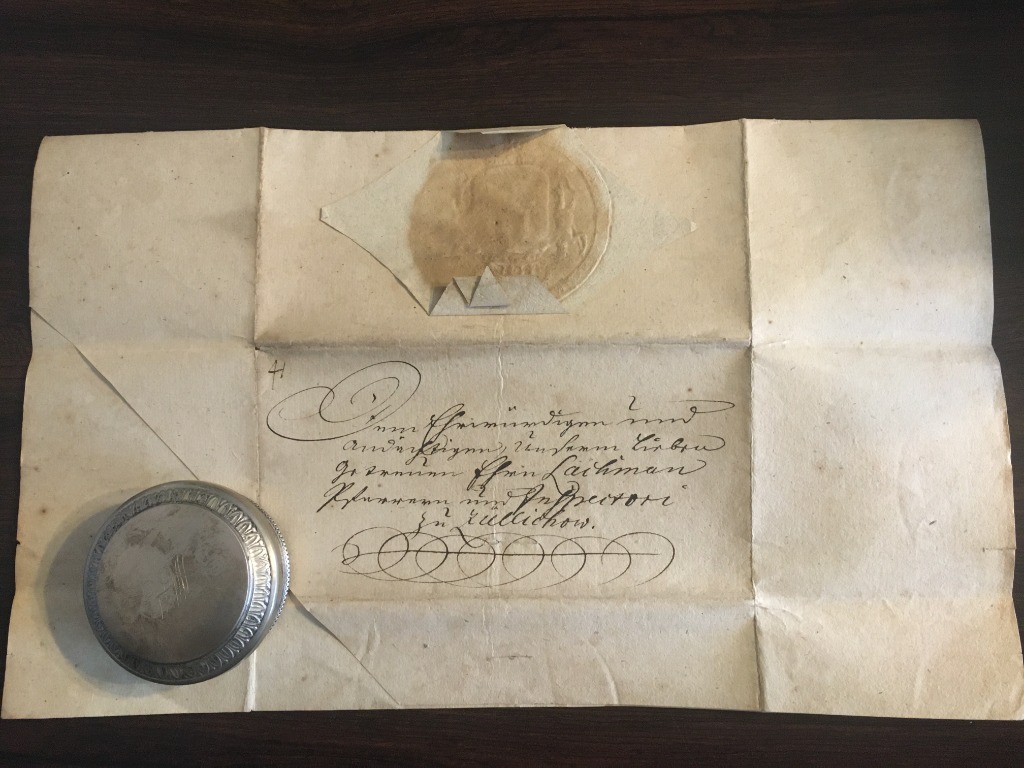 Dem Ehrwürdigen und
Andächtigen, Unserm Lieben
Getreuen Ehrn Lachman
Pfarrern und Inspectori
zu Züllichow.